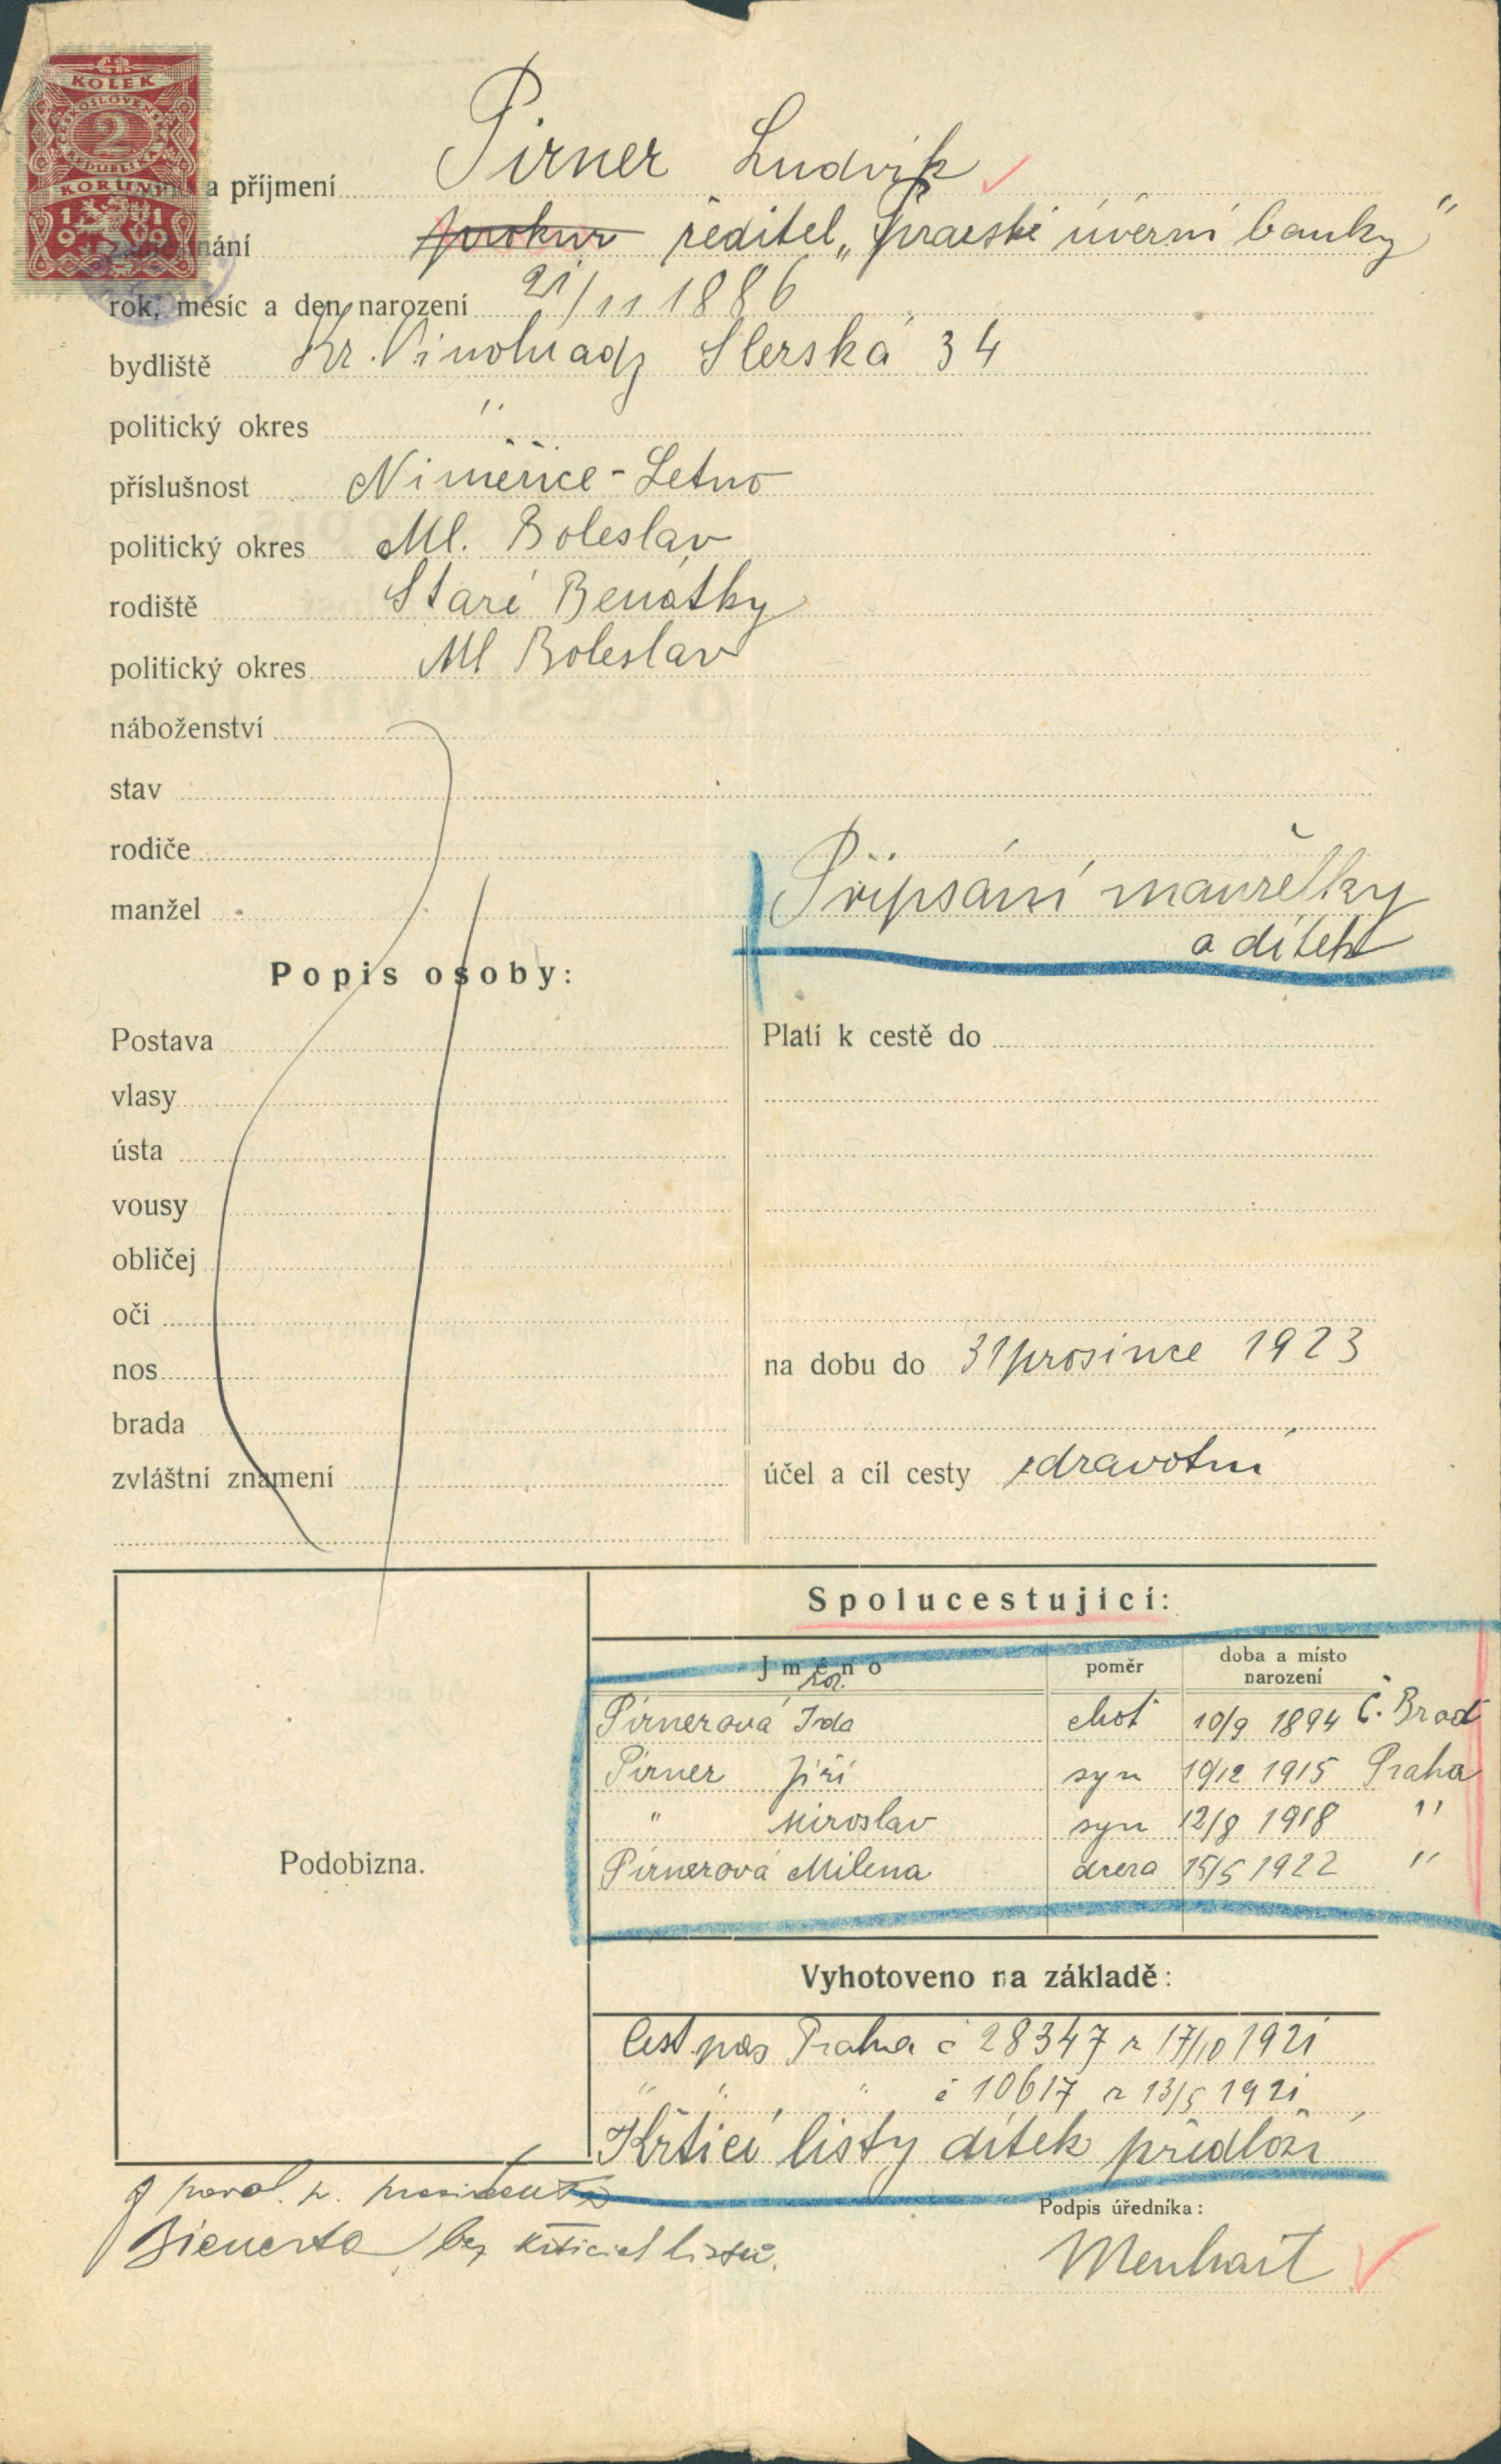 ČR
KOLEK
ČESKOSLOVENSKÁ
2
REPUBLIKA
KORUNY
19 19
a příjmení Pirner Ludvík
nání prokur ředitel „Pražské úvěrní banky"
rok, měsíc a den narození 21/11 1886
bydliště Kr. Vinohrady Slezská 34
politický okres "
příslušnost Niměřice - Letno
politický okres Ml. Boleslav
rodiště Staré Benátky
politický okres Ml Boleslav
náboženství
stav
rodiče
manžel
Připsání manželky
a dítek
Popis osoby:
Postava
vlasy
ústa
vousy
obličej
oči
nos
brada
zvláštní znamení
Platí k cestě do
na dobu do 31 prosince 1923
účel a cíl cesty zdravotní
Podobizna.
Spolucestující:
Jméno poměr doba a místo narození
roz.
Pirnerová Ida choť 10/9 1894 Č. Brod
Pirner Jiří syn 19/12 1915 Praha
" Miroslav syn 12/8 1918 "
Pirnerová Milena dcera 15/5 1922 "
Vyhotoveno na základě:
Cest. pas Praha č 28347 z 17/10 1921
" " " č 10617 z 13/5 1921
Křticí listy dítek předloží
povol. p. presidenta
Bienerta bez křticích listů.
Podpis úředníka:
Menhart